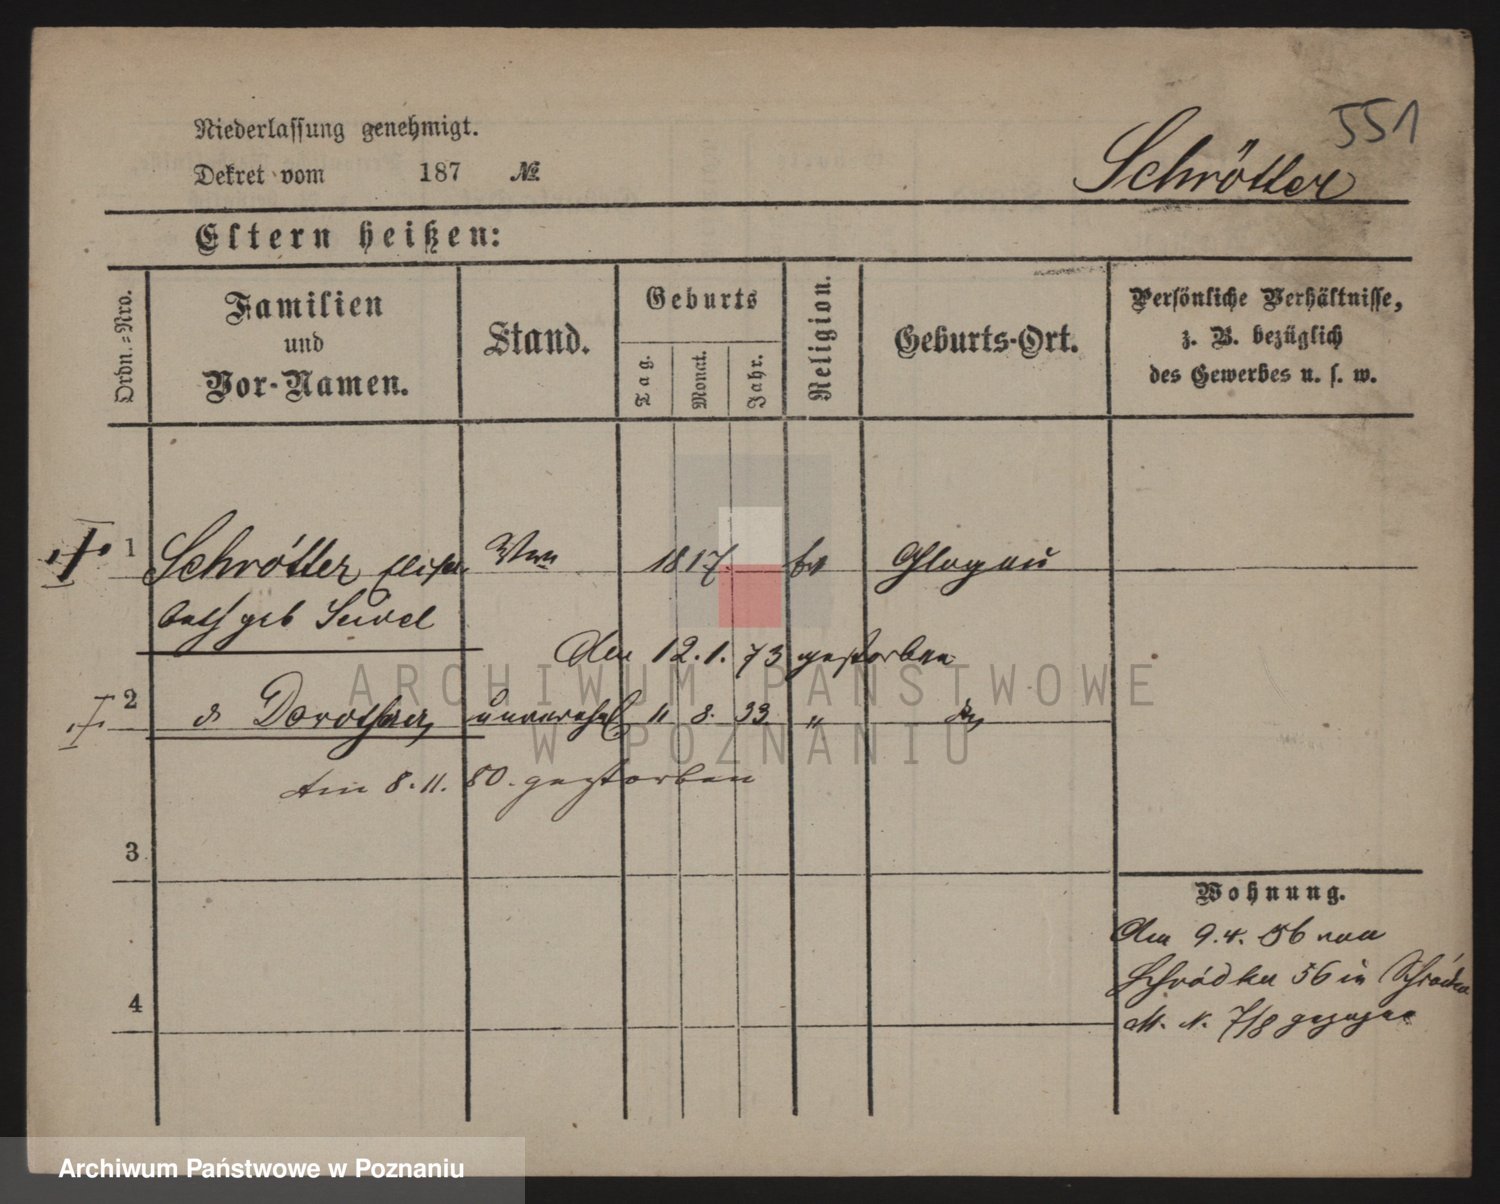 551
Niederlassung genehmigt.
Dekret vom 187 №
Schrötter
Eltern heißen:
Ordn.-Nro.
Familien
und
Vor-Namen.
Stand.
Geburts
Tag.
Monat.
Jahr.
Religion.
Geburts-Ort.
Persönliche Verhältnisse,
z. B. bezüglich
des Gewerbes u. s. w.
1 Schrötter Elisa- Wwe 1817. Ev Glogau
beth geb
Am 12.1.73 gestorben
2 Dorothea unverehel 11 8. 33 "
Am 8.11.80. gestorben
3
4
Wohnung.
Am 9.4.56 von
Schrödka 56 in Schrödka
M. N. 7/8 gezogen
ARCHIWUM PAŃSTWOWE
W POZNANIU
Archiwum Państwowe w Poznaniu